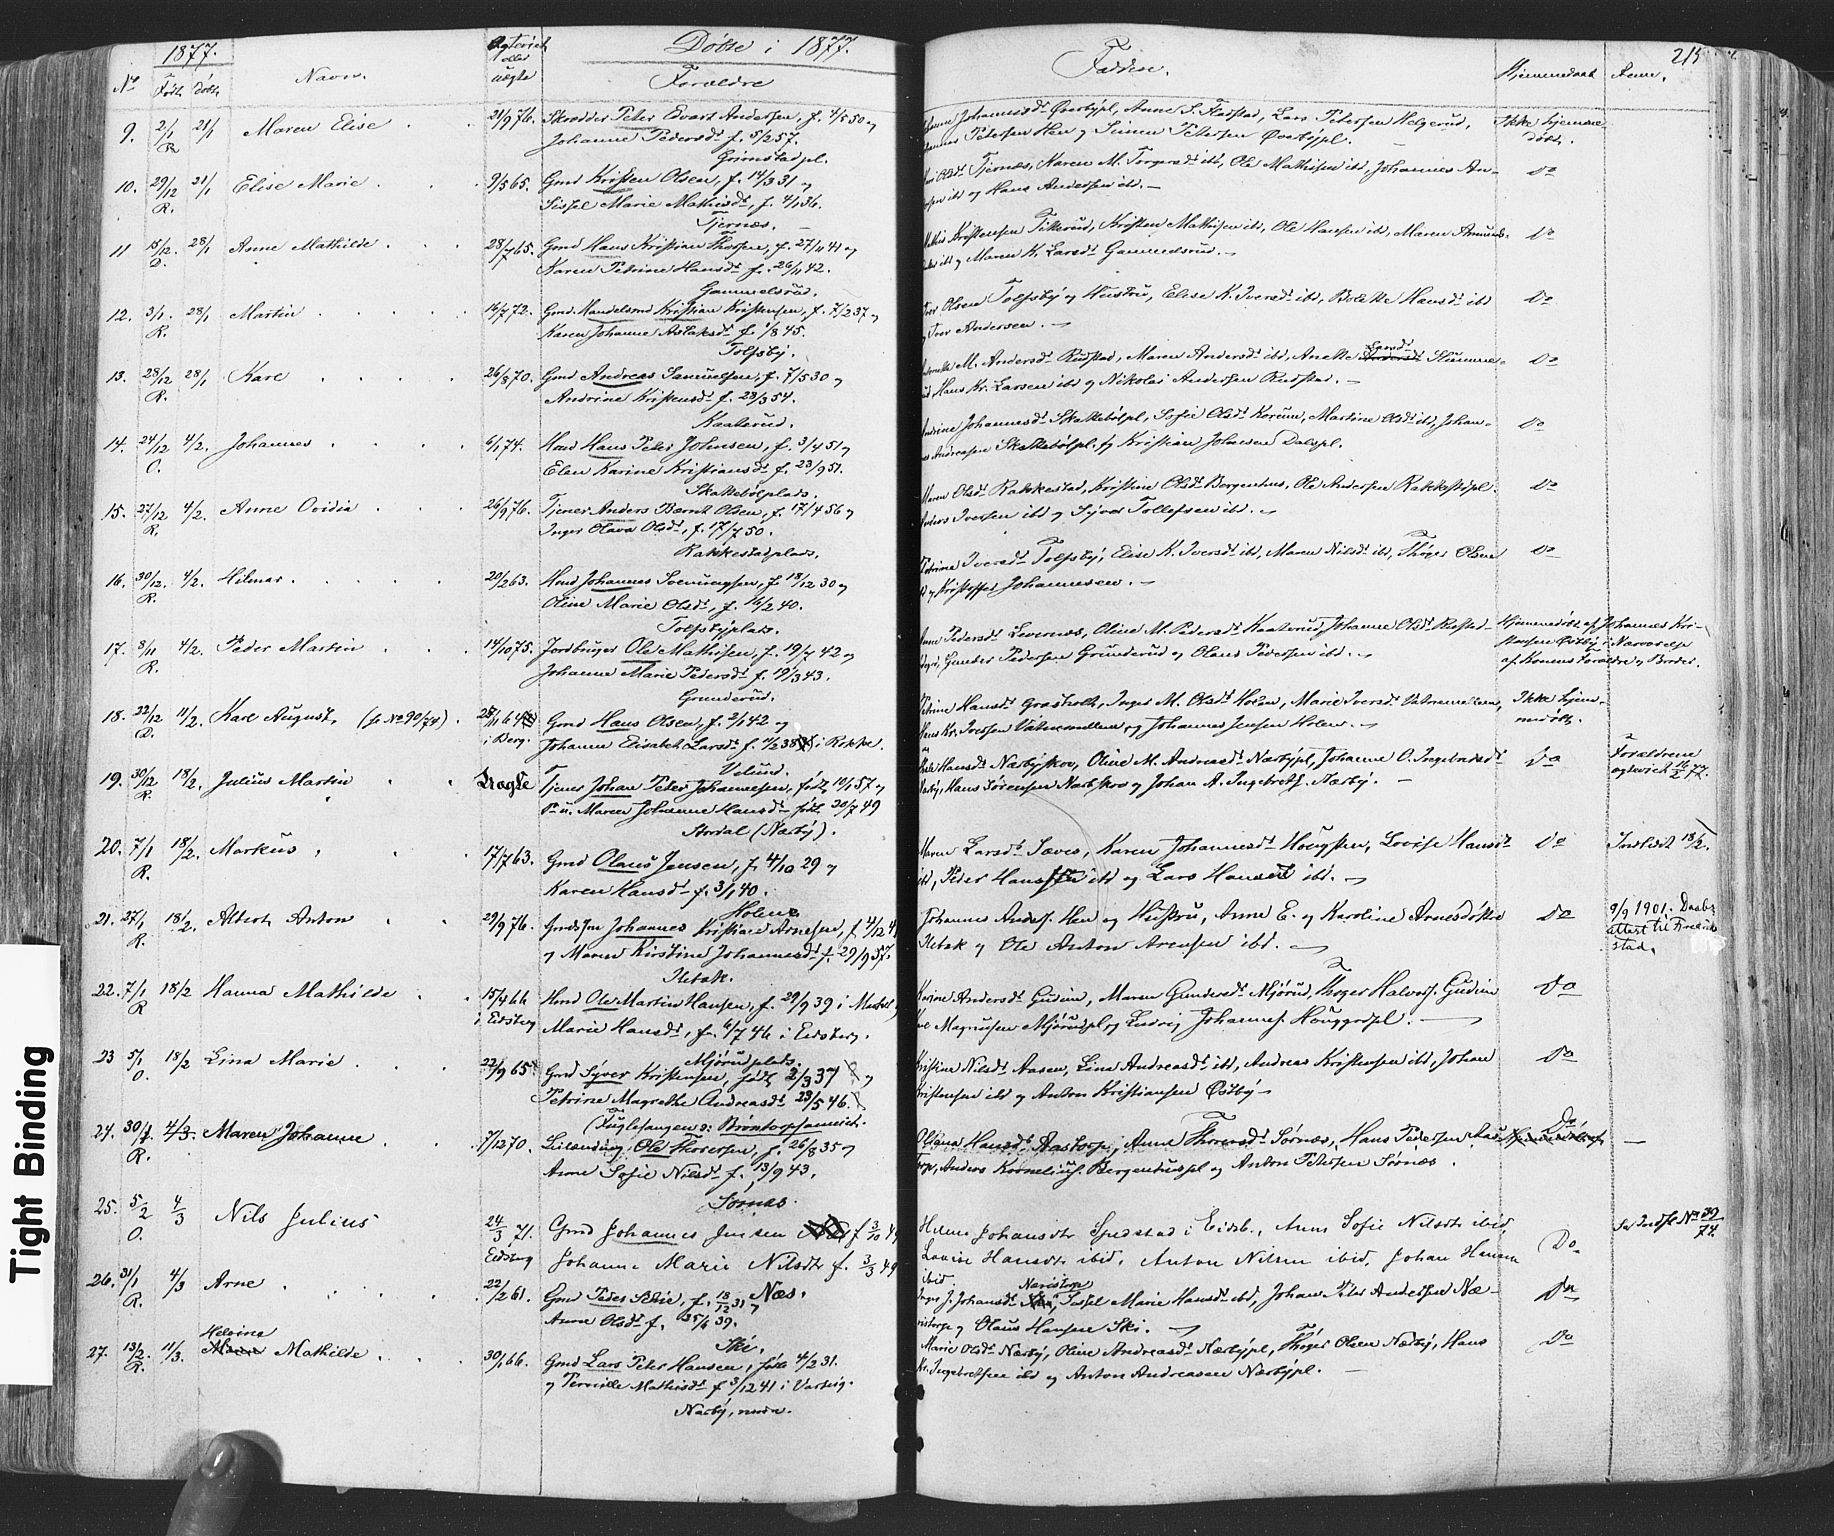 1877.
Døbte i 1877.
215
No
Født
Døbt
Navn.
Ægteviet
eller
uægte
Forældre
Faddere.
Hjemmedøbt
Anm.
9. 2/1 R 21/1 Maren Elise 21/9 76. Skrædder Peter Evart Andersen, f. 4/5 50 og
Johanne Pedersdt f. 5/2 57.
Grimstadpl.
Johannesdt Øvrebypl, Anne S. Lars Petersen Helgerud, Ikke hjemme
Petersen Hen og Simen Petersen Øvrebypl. døbt.
10. 29/12 R. 21/1 Elise Marie 9/5 65. Gmd Kristen Olsen, f. 14/3 31 og
Sissel Marie Mathisdt, f. 4/1 36.
Tjernæs.
Olsdt Tjernæs, Karen M. Torgersdt ibd, Ole Mathisen ibd, Johannes An- Do
ibd og Hans Andersen ibd.
11 15/12 D. 28/1 Anne Mathilde 28/7 65. Gmd Hans Kristian Thorsen, f. 27/11 41 og
Karen Petrine Hansdt f. 26/11 42.
Gammelsrud.
Mathis Kristensen Titterud, Kristen Mathisen ibd, Ole Hansen ibd, Maren Amunds- Do
ibd og Maren K. Larsdt Gammelsrud.
12. 3/1 R. 28/1 Martin 16/7 72. Gmd. Handelsmd Kristian Kristensen, f. 7/2 37 og
Karen Johanne Aslaksdt f. 1/8 45.
Tolfsby.
Olsen Tolfsby og Hustru, Elise K. Iversdt ibd, Bolette Hansdt ibd Do
og Iver Andersen.
13. 28/12 R. 28/1 Karl 26/8 70. Gmd Andreas Samuelsen, f. 7/5 30 og
Andrine Kristensdt f. 28/3 54.
Kaaterud.
M. Andersdt Rudstad, Maren Andersdt ibd, Anette Larsdt Do
Hans Kr. Larsen ibd og Nikolai Andersen Rudstad.
14. 24/12 O. 4/2. Johannes 6/1 74. Hmd Hans Peter Johnsen, f. 3/4 51 og
Elen Karine Kristiansdt f. 23/9 51.
Skattebølplads.
Andrine Johannesdt Skattebølpl, Sofie Olsdt Korum, Martine Olsdt ibd, Johan- Do
Andreasen Skattebølpl. og Kristian Johnsen Dalspl.
15. 27/12 R. 4/2. Anne Ovidia 26/9 76. Tjener Anders Bernt Olsen, f. 17/4 56 og
Inger Olava Olsdt, f. 17/7 50.
Rakkestadplads.
Maren Olsdt Rakkestad, Kristine Olsdt Borgenhus, Ole Andersen Rakkestpl. Do
Anders Iversen ibd og Syver Tollefsen ibd.
16. 30/12. R. 4/2. Hilmar 20/2 63. Hmd Johannes Svenungsen, f. 18/12 30 og
Oline Marie Olsdt, f. 16/2 40.
Tolfsbyplads.
Petrine Iversdt Tolfsby, Elise K. Iversdt ibd, Maren Nilsdt ibd, Thøger Olsen Do
og Kristoffer Johannesen.
17. 8/11 R. 4/2. Peder Martin 14/10 75. Jordbruger Ole Mathisen, f. 19/7 42 og
Johanne Marie Pedersdt f. 19/3 43.
Grunderud.
Anne Pedersdt Levernæs, Oline M. Pedersdt Kaaterud, Johanne Olsdt Rustad- Hjemmedøbt af Johannes Kri-
Gunder Pedersen Grunderud og Olaus Pedersen ibd. stensen Østby i Nærværelse
af Konens Forældre og Broder.
18. 22/12 D. 11/2. Karl August, (se No 90/74) 28/11 64 Gmd Hans Olsen, f. 2/1 42 og
i Berg. Johanne Elisabeth Larsdt f. 11/2 38 i Rokke.
Velund.
Petrine Hansdt Græsholt, Inger M. Olsdt Holen, Marie Iversdt Vatvemellem, Ikke hjem-
Hans Kr. Iversen Vatvemellem og Johannes Jensen Holen. medøbt.
19. 30/12 R. 18/2. Julius Martin Uægte Tjener Johan Peter Johannesen, født 10/1 57 og
P. u. Maren Johanne Hansdt født 20/7 49
Aardal (Nærby).
Hansdt Nærbyskov, Oline M. Andreasdt Nærbypl, Johanne O. Ingebretsdt Do Forældrene
Nærby, Hans Sørensen Nærbskov og Johan A. Ingebretsen Nærby. ægteviet 16/2 77.
20. 7/1 R. 18/2. Markus 17/7 63. Gmd Olaus Jensen, f. 4/10 29 og
Karen Hansdt f. 3/1 40.
Holene
Maren Larsdt Sæves, Karen Johannesdt Hougsten, Lovise Hansdt Do Indledt 18/2.
ibd, Peder Hansen ibd og Lars Hansen ibd.
21. 27/1 R. 18/2. Albert Anton 29/9 76. Gmdsøn Johannes Kristian Arnesen, f. 4/12 4
og Maren Kirstine Johannesdt f. 29/9 57.
Iletak.
Johannes Anders. Hen og Hustru, Anne E. og Karoline Arnesdøttre Do 9/9 1901. Daabs-
Iletak og Ole Anton Arnesen ibd. attest til Fredrik-
stad.
22. 7/1 R 18/2 Hanna Mathilde 15/4 66 Hmd Ole Martin Hansen, f. 29/9 39 i
i Eidsberg Marie Hansdt, f. 6/7 46 i Eidsberg.
Mjørudplads.
Karine Andersdt Gudim, Maren Gundersdt Mjørud, Thøger Halvors. Gudim Do
Magnussen Mjørudpl og Ludvig Johannes. Hougerpl.
23 5/1 O. 18/2 Lina Marie 22/9 65. Gmd Syver Kristensen, født 2/3 37 og
Petrine Magrethe Andreasdt 23/5 46.
(Fuglesangen o:
Kristine Nilsdt Aasen, Lina Andreasdt ibd, Andreas Kristensen ibd, Johan Do
Kristensen ibd og Anton Kristiansen Østby
24. 30/1 R. 4/3. Maren Johanne 7/12 70. Leilænding Ole Thoresen, f. 26/8 35 og
Anne Sofie Nilsdt, f. 13/9 43.
Sørnæs.
Oliana Hansdt Aastorp, Anne Thoresdt Sørnæs, Hans Pedersen Aas- Do
torp, Anders Kornelius. Borgenhuspl og Anton Petersen Sørnæs.
25. 5/2 O. 4/3 Nils Julius 24/3 71. Gmd Johannes Jensen f 3/10 49
Eidsberg Johanne Marie Nilsdt f. 3/3 49
Næs.
Helene Johansdt. Spydstad i Eidsb., Anne Sofie Nilsdt ibid, Se Indfl No 39/74.
Lovise Hansdt ibid, Anton Nilsen ibid, Johan Hansen Do.
ibid.
26. 31/1 R. 4/3 Arne 22/2 61. Gmd Peder Schie, f. 18/12 31 og
Anne Olsdt f. 25/4 39.
Ski.
Inger J. Johansdt Næristorp, Sissel Marie Hansdt ibd, Johan Peter Andersen Næ- Do
ristorp og Olaus Hansen Ski.
27. 13/2. R. 11/3. Helvine Mathilde 30/1 66. Gmd Lars Peter Hansen, født 4/2 31.
og Pernille Mathisdt f 3/12 41 i Varteig.
Nærby, nedre.
Marie Olsdt Nærby, Oline Andreasdt Nærbypl, Thøger Olsen Nærby, Hans Do
Kr. Ingebretsen ibd og Anton Andreassen Nærbypl.
Tight Binding